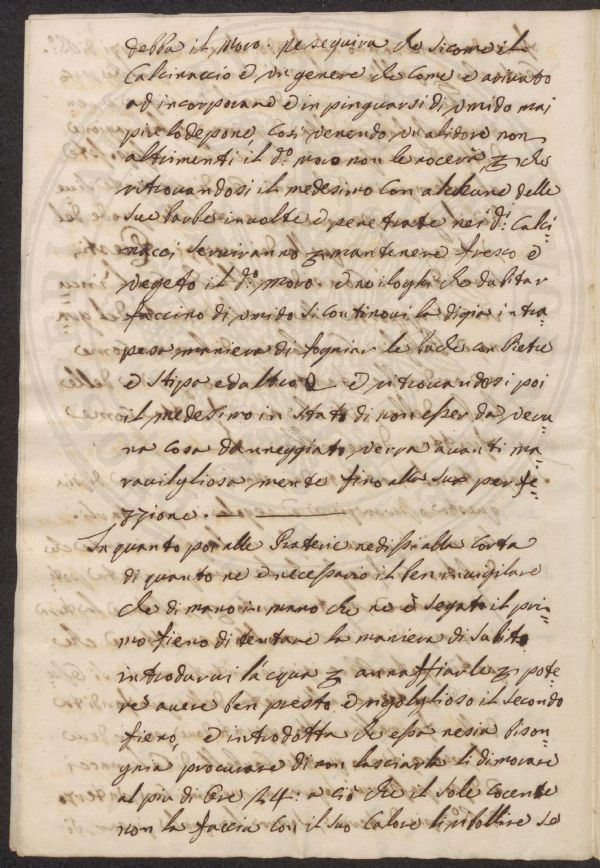 debba il Moro. ne seguirà che sicome il
Calcinaccio è un genere che come è arivato
ad incorporare e in pinguarsi di umido mai
piu lo depone, così venendo un alidore non
altrimenti il d.º moro non le nocerà, che
ritrovandosi il medesimo con alchune delle
sue barbe involte e penetrate nei d.i Calci=
nacci serviranno mantenere fresco e
vegeto il d.º Moro. e nei loghi che dubitar
faccino di umido si continovi la digià intra=
presa maniera di fogniar le buche con Pietre
e Stipa ed altro e ritrovandosi poi
il medesimo in stato di non esser da veru=
na cosa danneggiato verrà avanti ma=
ravilgliosa mente fino alla sua perfe=
zzione.
In quanto poi alle Praterie nedissi alla Corta
di quanto ne è necessario il ben invigilare
che di mano in mano che ne è segato il pri=
mo fieno di tentare la maniera di subito
introdurvi l'acqua annaffiarle pote=
re avere ben presto e rigolglioso il secondo
fieno, e introdotta che essa nesia bison=
gnia procurare di non lasciarla li dimorare
al piu di Ore 24: a ciò che il Sole Cocente
non la faccia con il suo Calore li ribollire se